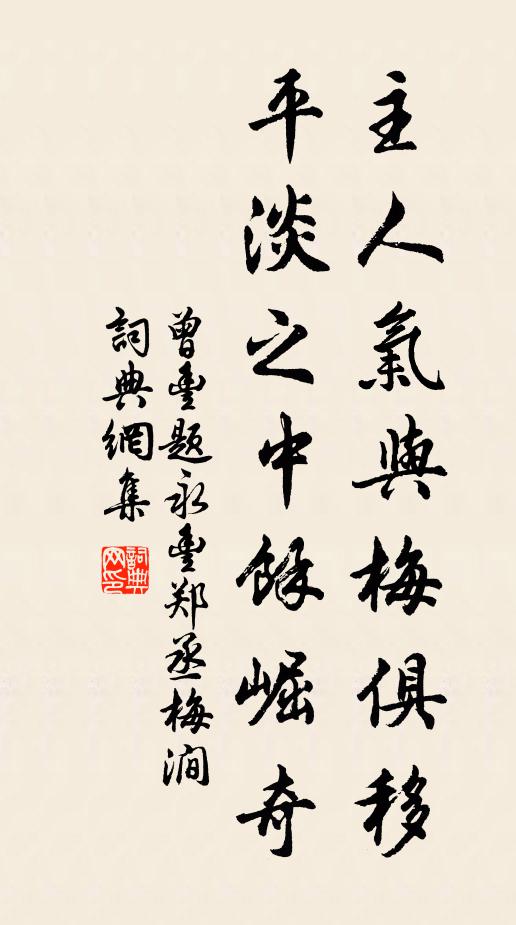 主人氣與梅俱移
平淡之中餘崛奇
曾豐題永豐郑丞梅澗
詞典網集
詞典網印